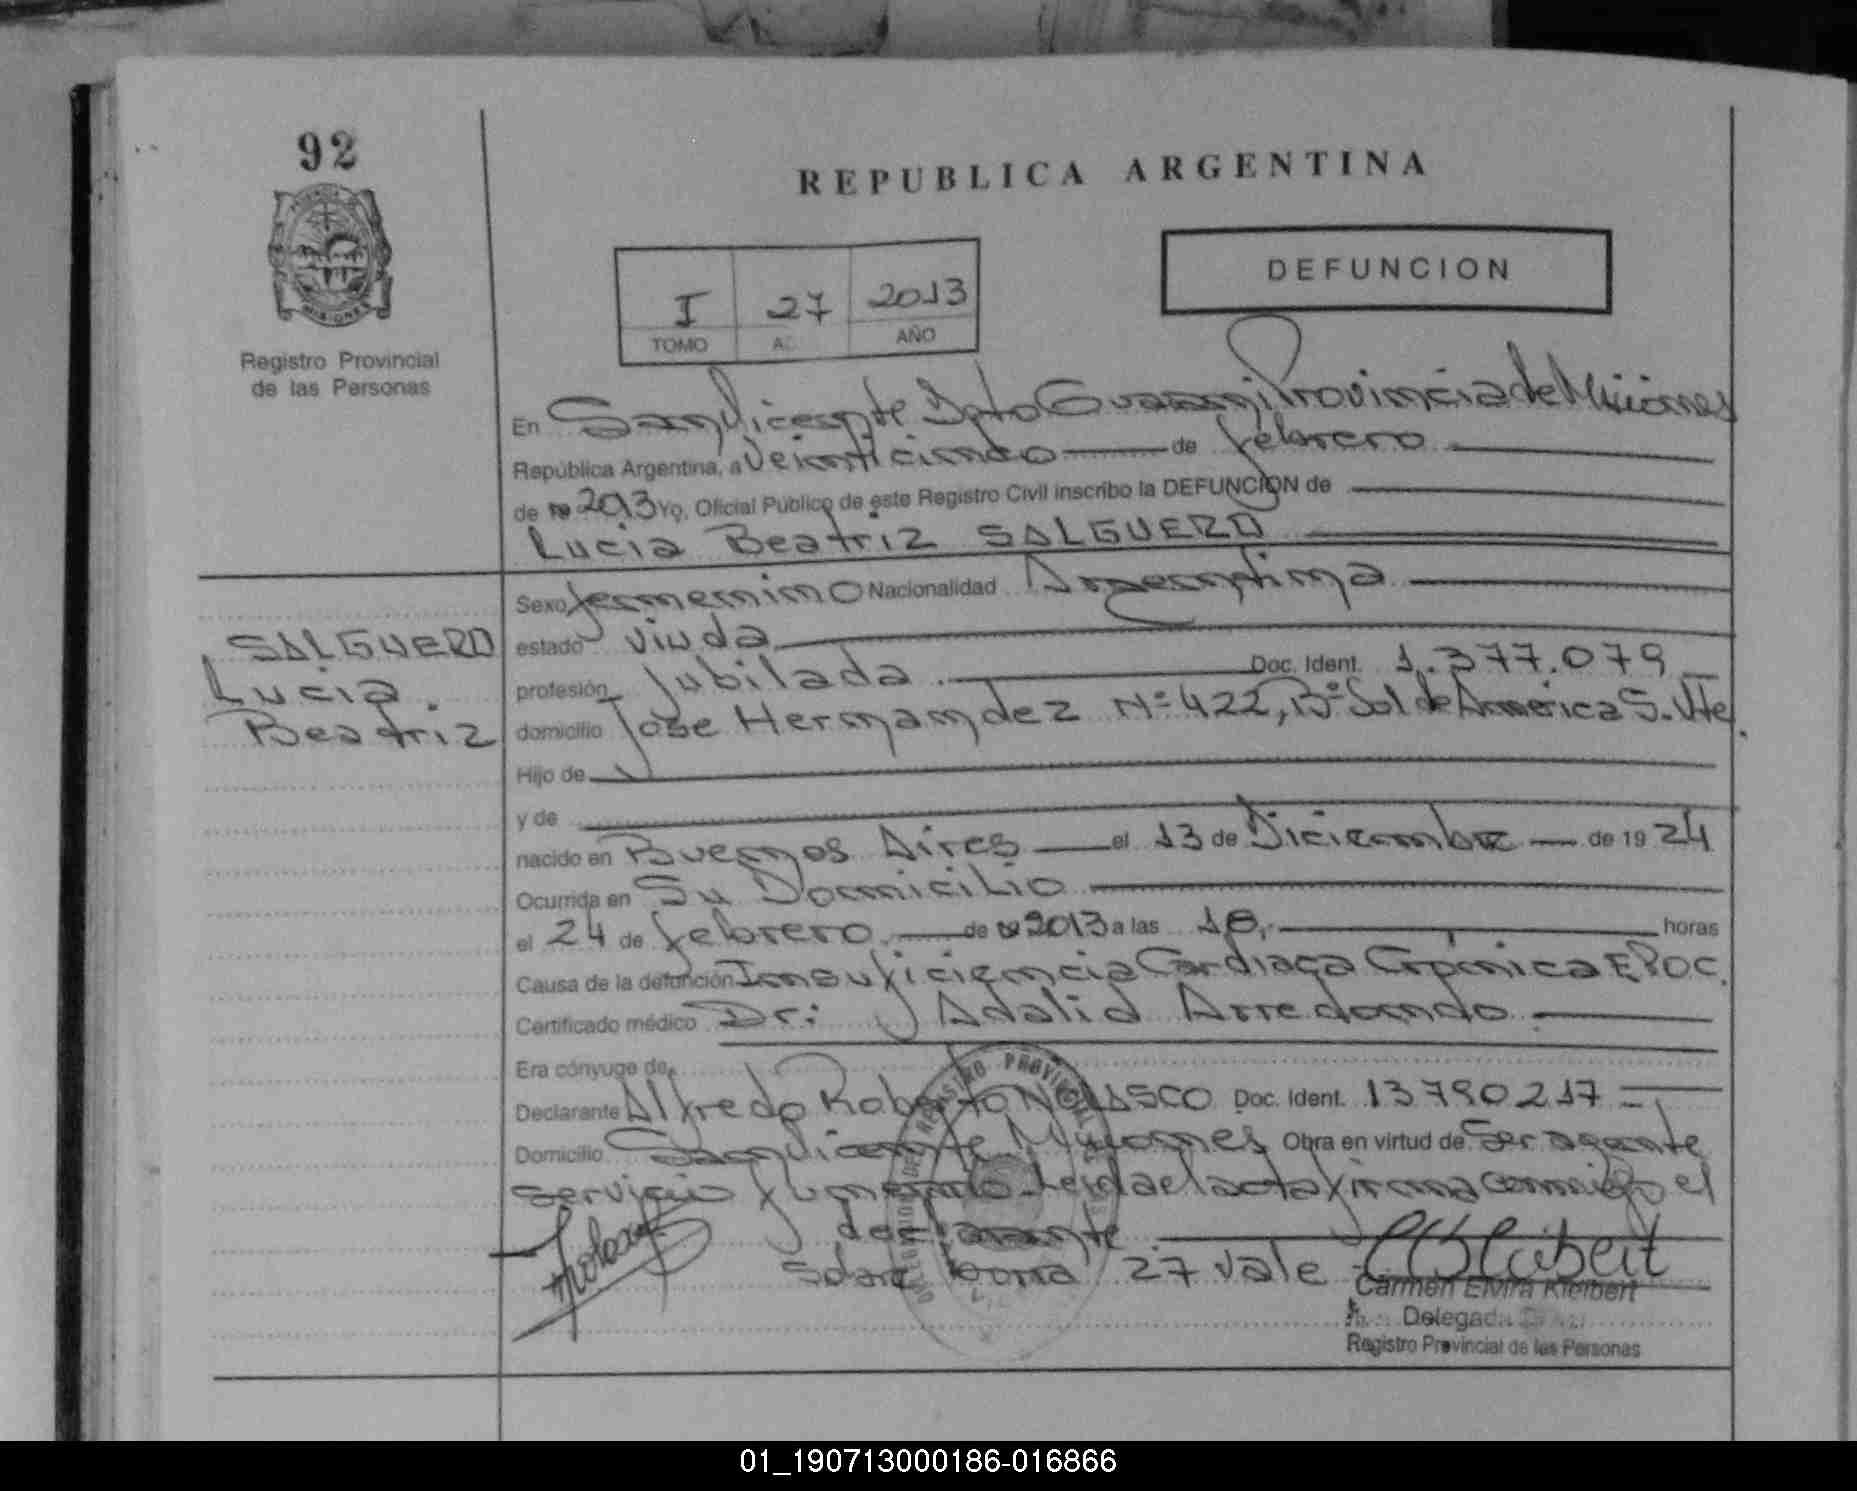 92
REPUBLICA ARGENTINA
DEFUNCION
I 27 2013
TOMO AC AÑO
Registro Provincial
de las Personas
MISIONES
En San Vicente Dpto Guarani Provincia de Misiones
República Argentina, a Veinticinco de febrero
de 2013 Yo, Oficial Público de este Registro Civil inscribo la DEFUNCION de
Lucia Beatriz SALGUERO
SALGUERO
Lucia
Beatriz
Sexo femenino Nacionalidad Argentina
estado viuda
profesión Jubilada Doc. Ident. 1.377.079
domicilio Jose Hernandez N° 422, B° Sol de America S. Vte.
Hijo de
y de
nacido en Buenos Aires el 13 de Diciembre de 19 24
Ocurrida en Su Domicilio
el 24 de febrero de 2013 a las 18, horas
Causa de la defunción Insuficiencia Cardiaca Cronica EPOC.
Certificado médico Dr: Adalid Arredondo
Era cónyuge de
Declarante Alfredo Roberto NOLASCO Doc. Ident. 13790217
Domicilio San Vicente Misiones Obra en virtud de Ser agente
servicio funerario. Leida el acta firma conmigo el
declarante
Sobre 27 vale
Carmen Elvira Kleibert
Delegada
Registro Provincial de las Personas
01_190713000186-016866